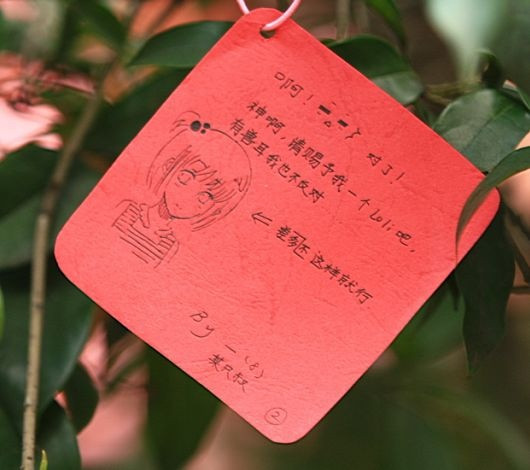 啊！ 对了！
神啊，请赐予我一个Loli吧，
有兽耳我也不反对
← 差不 这样就行
By
某只叔
②